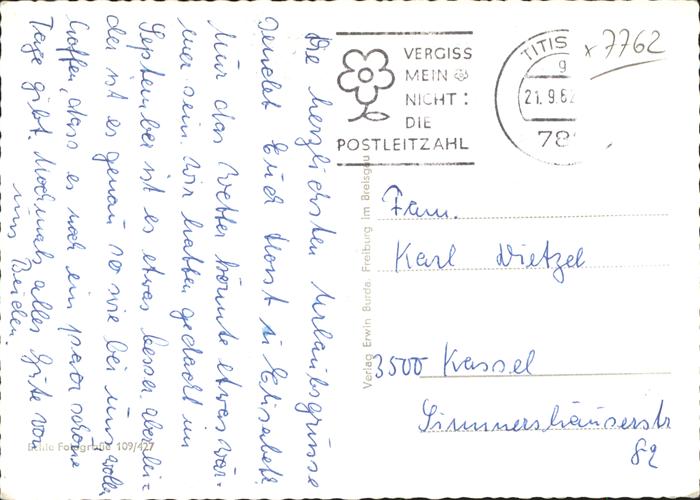 Die herzlichsten Urlaubsgrüsse
sendet Euch Horst u. Elisabeth
Nur das Wetter könnte etwas wär-
mer sein. Wir hatten gedacht im
September ist es etwas besser. Aber lei-
der ist es genau so wie bei uns. Wollen
hoffen, dass es noch ein paar schöne
Tage gibt. Nochmals alles Gute von
uns Beiden
VERGISS
MEIN
NICHT:
DIE
POSTLEITZAHL
TITIS
9
21.9.62
78
x 7762
Verlag Erwin Burda, Freiburg im Breisgau
Fam.
Karl Dietzel
3500 Kassel
Simmershäuserstr
82
Fotografie 109/427